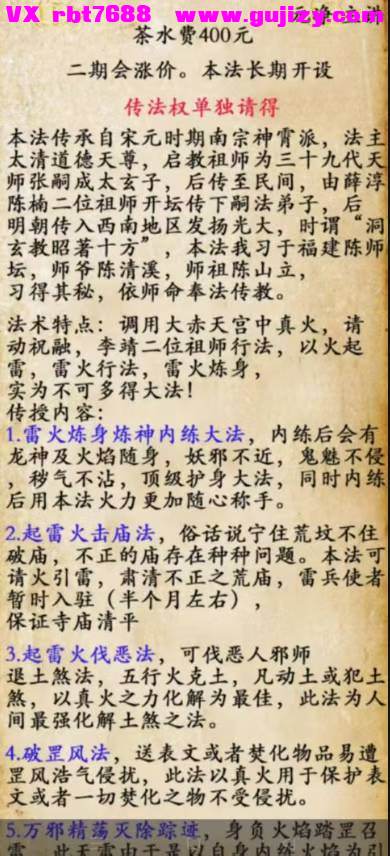 VX rbt7688 www.gujizy.com
茶水费400元
二期会涨价。本法长期开设
传法权单独请得
本法传承自宋元时期南宗神霄派，法主
太清道德天尊，启教祖师为三十九代天
师张嗣成太玄子，后传至民间，由薛淳
陈楠二位祖师开坛传下嗣法弟子，后
明朝传入西南地区发扬光大，时谓“洞
玄教昭著十方”，本法我习于福建陈师
坛，师爷陈清溪，师祖陈山立，
习得其秘，依师命奉法传教。
法术特点：调用大赤天宫中真火，请
动祝融，李靖二位祖师行法，以火起
雷，雷火行法，雷火炼身，
实为不可多得大法！
传授内容：
1.雷火炼身炼神内练大法，内练后会有
龙神及火焰随身，妖邪不近，鬼魅不侵
，秽气不沾，顶级护身大法，同时内练
后用本法火力更加随心称手。
2.起雷火击庙法，俗话说宁住荒坟不住
破庙，不正的庙存在种种问题。本法可
请火引雷，肃清不正之荒庙，雷兵使者
暂时入驻（半个月左右），
保证寺庙清平
3.起雷火伐恶法，可伐恶人邪师
退土煞法，五行火克土，凡动土或犯土
煞，以真火之力化解为最佳，此法为人
间最强化解土煞之法。
4.破罡风法，送表文或者焚化物品易遭
罡风浩气侵扰，此法以真火用于保护表
文或者一切焚化之物不受侵扰。
5.万邪精荡灭除踪迹，身负火焰踏罡召
雷，此天雷由于是以自身内练火焰为引